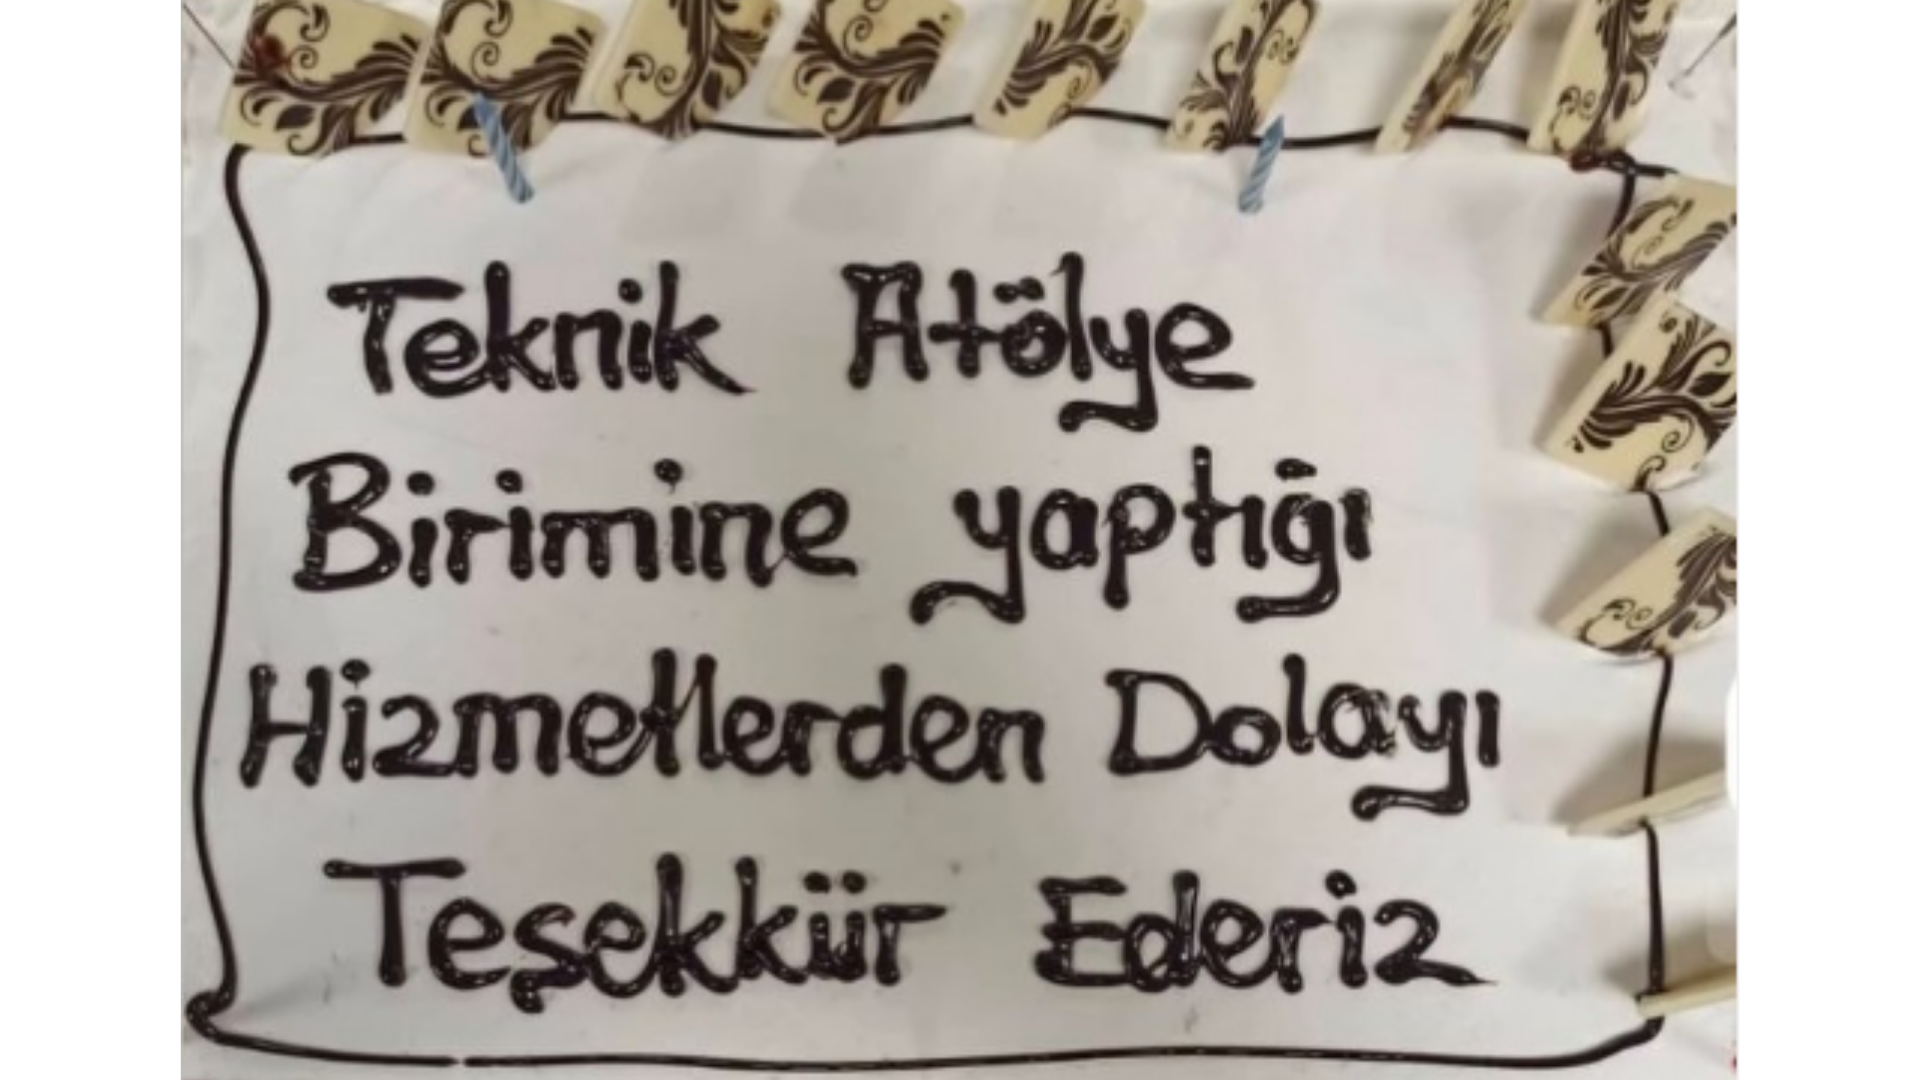 Teknik Atölye
Birimine yaptığı
Hizmetlerden Dolayı
Teşekkür Ederiz